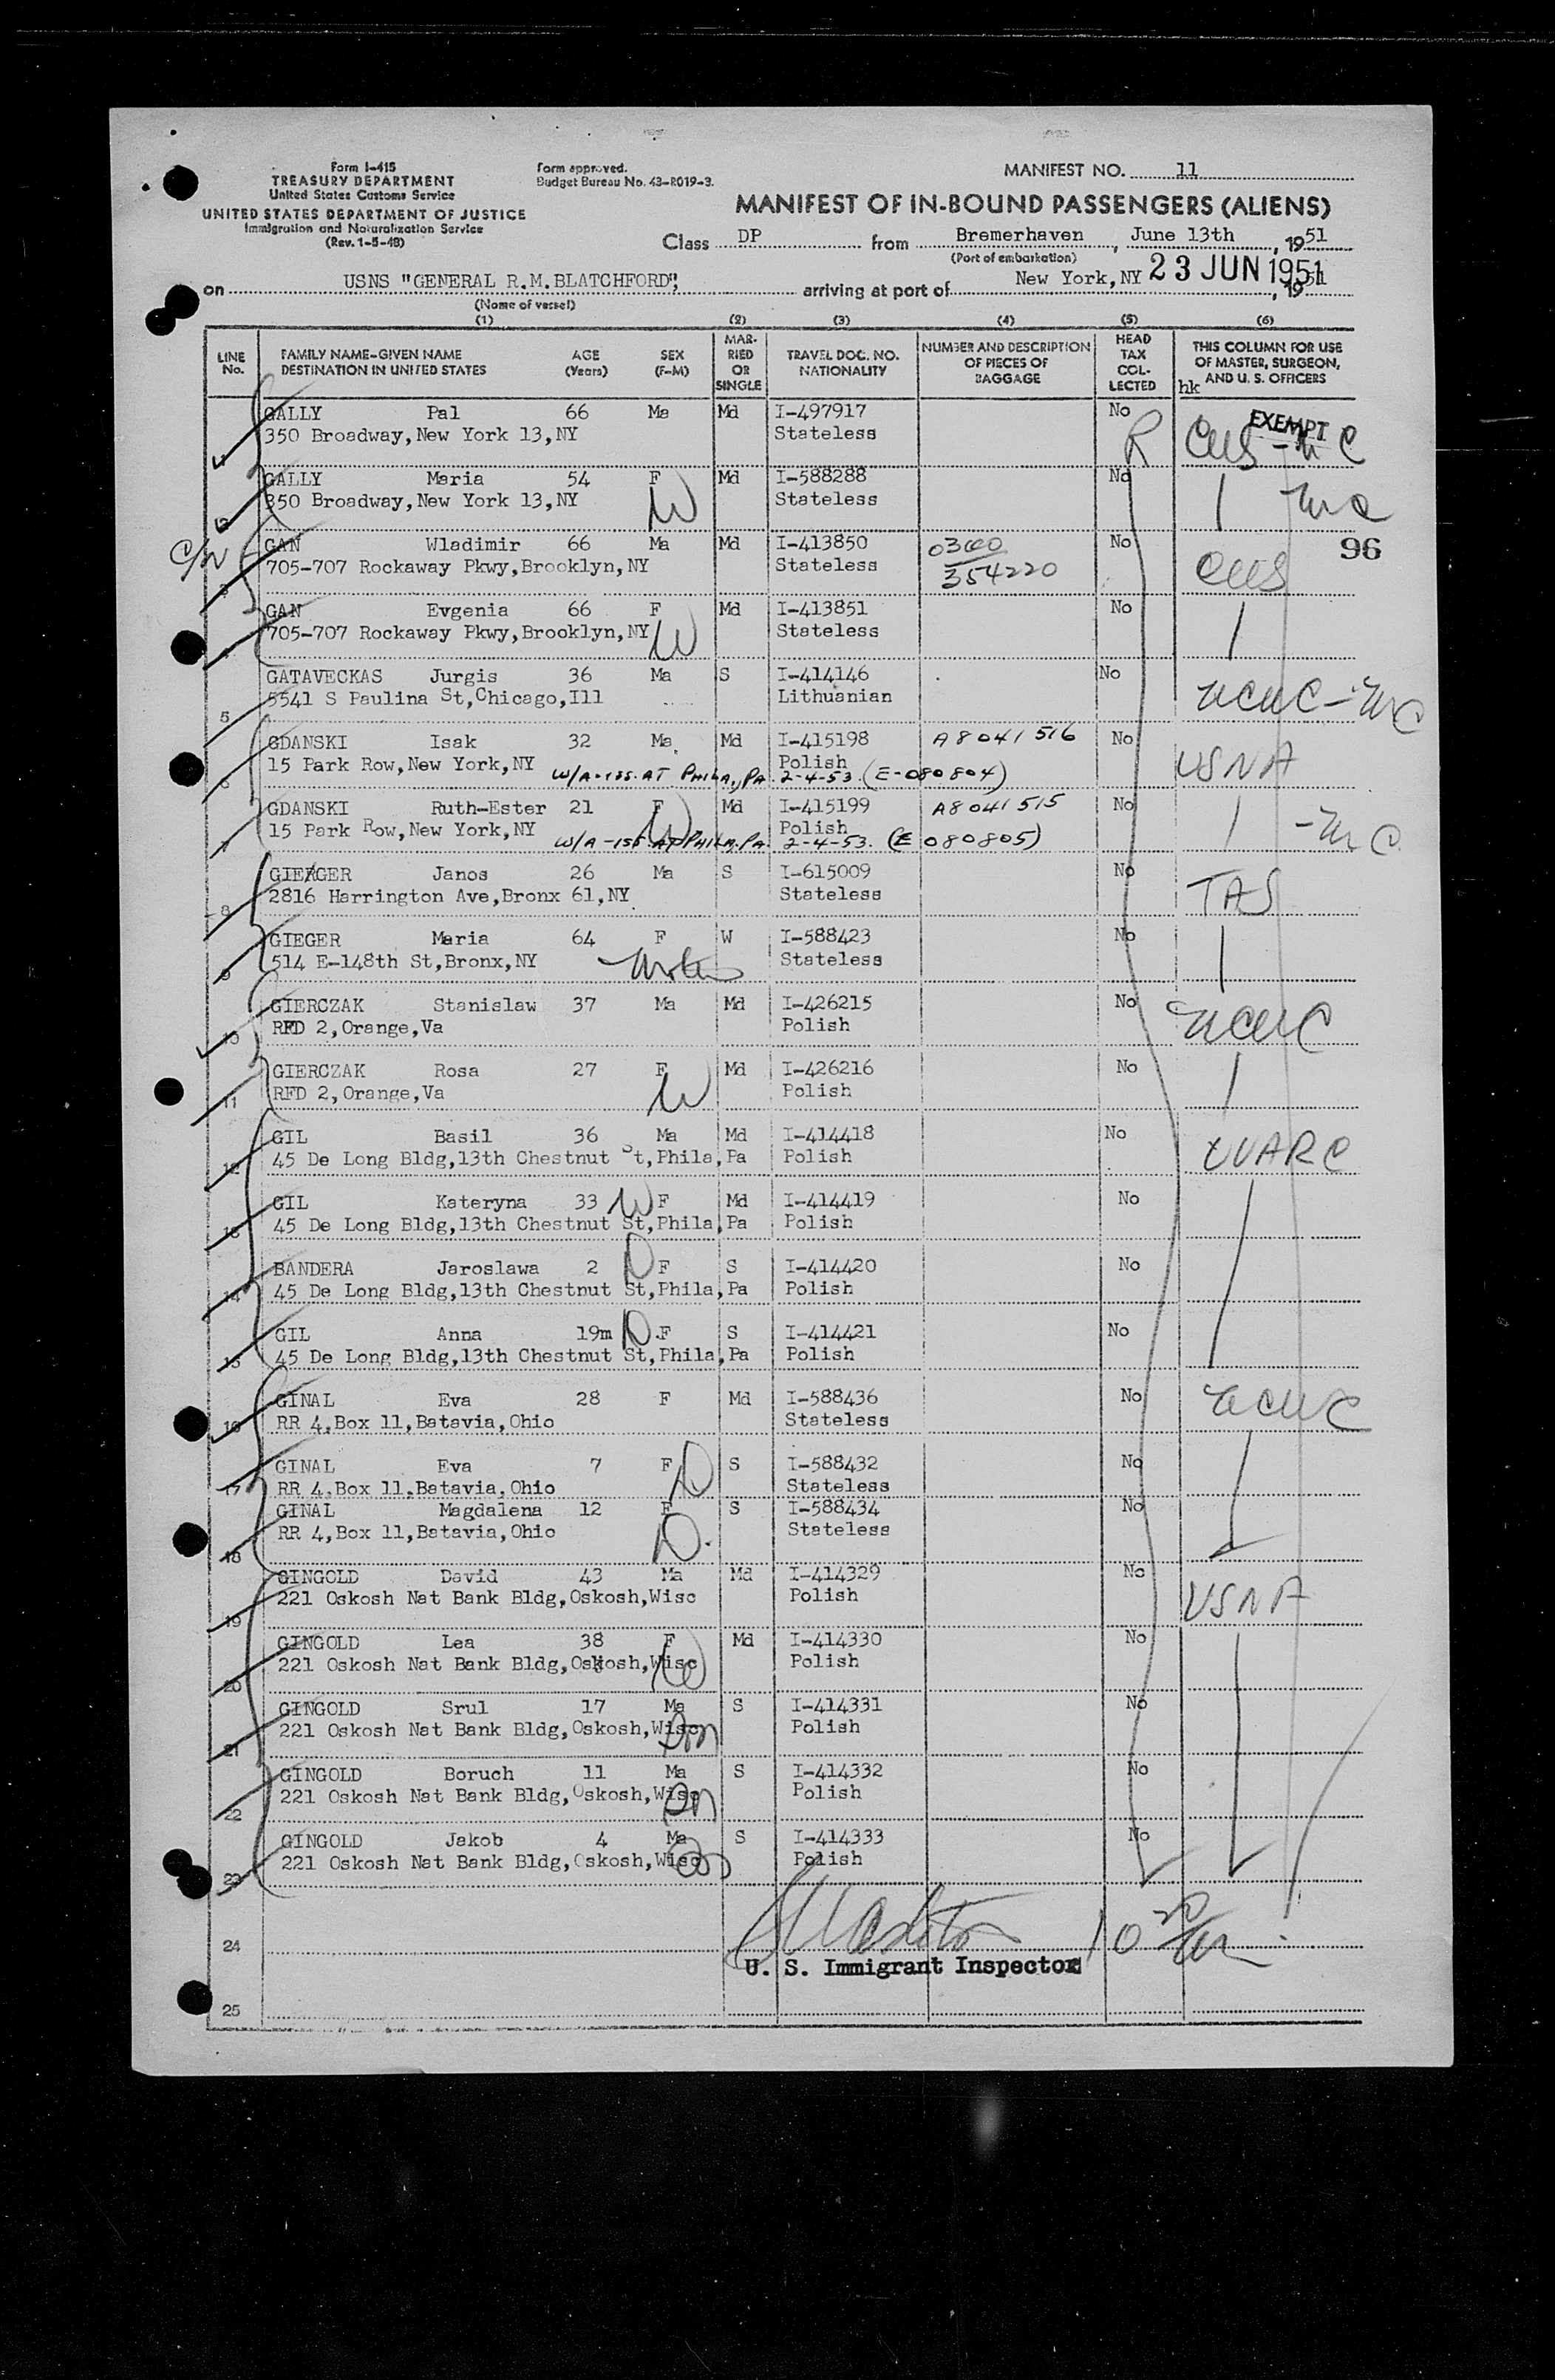 Form I-415
TREASURY DEPARTMENT
United States Customs Service
UNITED STATES DEPARTMENT OF JUSTICE
Immigration and Naturalization Service
(Rev. 1-5-48)
Form approved.
Budget Bureau No. 43-R019-3.
MANIFEST NO. 11
MANIFEST OF IN-BOUND PASSENGERS (ALIENS)
Class DP from Bremerhaven, June 13th, 1951
(Port of embarkation)
on USNS "GENERAL R.M.BLATCHFORD", arriving at port of New York,NY 23 JUN 1951, 1951
(Name of vessel)
(1) (2) (3) (4) (5) (6)
LINE No. FAMILY NAME-GIVEN NAME DESTINATION IN UNITED STATES AGE (Years) SEX (F-M) MARRIED OR SINGLE TRAVEL DOC. NO. NATIONALITY NUMBER AND DESCRIPTION OF PIECES OF BAGGAGE HEAD TAX COLLECTED THIS COLUMN FOR USE OF MASTER, SURGEON, AND U. S. OFFICERS
hk
GALLY Pal 66 Ma Md I-497917 No EXEMPT
350 Broadway,New York 13,NY Stateless R
GALLY Maria 54 F Md I-588288 No
350 Broadway,New York 13,NY W Stateless
C/N GAN Wladimir 66 Ma Md I-413850 0300 No 96
705-707 Rockaway Pkwy,Brooklyn,NY Stateless 354220
GAN Evgenia 66 F Md I-413851 No
705-707 Rockaway Pkwy,Brooklyn,NY W Stateless
GATAVECKAS Jurgis 36 Ma S I-414146 No
5 5541 S Paulina St,Chicago,Ill Lithuanian NCWC
6 GDANSKI Isak 32 Ma Md I-415198 A8041516 No
15 Park Row,New York,NY Polish USNA
W/A-155 AT PHILA, PA. 2-4-53 (E-080804)
7 GDANSKI Ruth-Ester 21 F Md I-415199 A8041515 No
15 Park Row,New York,NY W Polish
W/A-155 AT PHILA. PA. 2-4-53. (E 080805)
8 GIERGER Janos 26 Ma S I-615009 No
2816 Harrington Ave,Bronx 61,NY Stateless TAS
9 GIEGER Maria 64 F W I-588423 No
514 E-148th St,Bronx,NY Stateless
10 GIERCZAK Stanislaw 37 Ma Md I-426215 No
RFD 2,Orange,Va Polish NCWC
11 GIERCZAK Rosa 27 F Md I-426216 No
RFD 2,Orange,Va W Polish
12 GIL Basil 36 Ma Md I-414418 No
45 De Long Bldg,13th Chestnut St,Phila,Pa Polish UUARC
13 GIL Kateryna 33 W F Md I-414419 No
45 De Long Bldg,13th Chestnut St,Phila,Pa Polish
14 BANDERA Jaroslawa 2 D F S I-414420 No
45 De Long Bldg,13th Chestnut St,Phila,Pa Polish
15 GIL Anna 19m D. F S I-414421 No
45 De Long Bldg,13th Chestnut St,Phila,Pa Polish
16 GINAL Eva 28 F Md I-588436 No NCWC
RR 4,Box 11,Batavia,Ohio Stateless
17 GINAL Eva 7 F D S I-588432 No
RR 4,Box 11,Batavia,Ohio Stateless
18 GINAL Magdalena 12 F S I-588434 No
RR 4,Box 11,Batavia,Ohio D. Stateless
19 GINGOLD David 43 Ma Md I-414329 No
221 Oskosh Nat Bank Bldg,Oskosh,Wisc Polish USNA
20 GINGOLD Lea 38 F Md I-414330 No
221 Oskosh Nat Bank Bldg,Oskosh,Wisc W Polish
21 GINGOLD Srul 17 Ma S I-414331 No
221 Oskosh Nat Bank Bldg,Oskosh,Wisc Son Polish
22 GINGOLD Boruch 11 Ma S I-414332 No
221 Oskosh Nat Bank Bldg,Oskosh,Wisc Son Polish
23 GINGOLD Jakob 4 Ma S I-414333 No
221 Oskosh Nat Bank Bldg,Oskosh,Wisc Son Polish
24
U. S. Immigrant Inspector
25